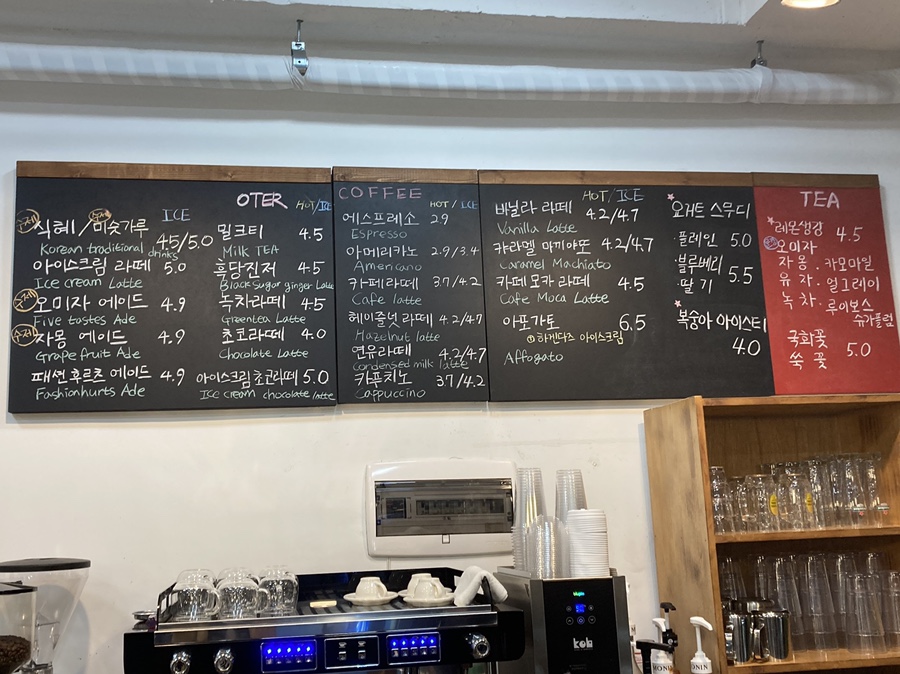 ICE
수제 식혜 / 수제 미숫가루 4.5/5.0
Korean traditional drinks
아이스크림 라떼 5.0
Ice cream Latte
수제 오미자 에이드 4.9
Five tastes Ade
수제 자몽 에이드 4.9
Grape fruit Ade
패션후르츠 에이드 4.9
Fashionhurts Ade
OTER HOT/ICE
밀크티 4.5
Milk TEA
흑당진저 4.5
Black Sugar ginger Latte
녹차라떼 4.5
Greentea Latte
초코라떼 4.0
Chocolate Latte
아이스크림초코라떼 5.0
ICE cream chocolate latte
COFFEE
HOT / ICE
에스프레소 2.9
Espresso
아메리카노 2.9/3.4
Americano
카페라떼 3.7/4.2
Cafe latte
헤이즐넛 라떼 4.2/4.7
Hazelnut latte
연유라떼 4.2/4.7
Condensed milk latte
카푸치노 3.7/4.2
Cappuccino
HOT/ICE
바닐라 라떼 4.2/4.7
Vanilla Latte
캬라멜 마끼야또 4.2/4.7
Caramel Machiato
카페모카 라떼 4.5
Cafe Moca Latte
아포가토 6.5
하겐다즈 아이스크림
Affogato
요거트 스무디
플레인 5.0
블루베리
딸기 5.5
복숭아 아이스티
4.0
TEA
레몬생강 4.5
오미자
자몽 · 카모마일
유자 · 얼그레이
녹차 · 루이보스
슈가플럼
국화꽃
쑥 꽃 5.0
MONIN